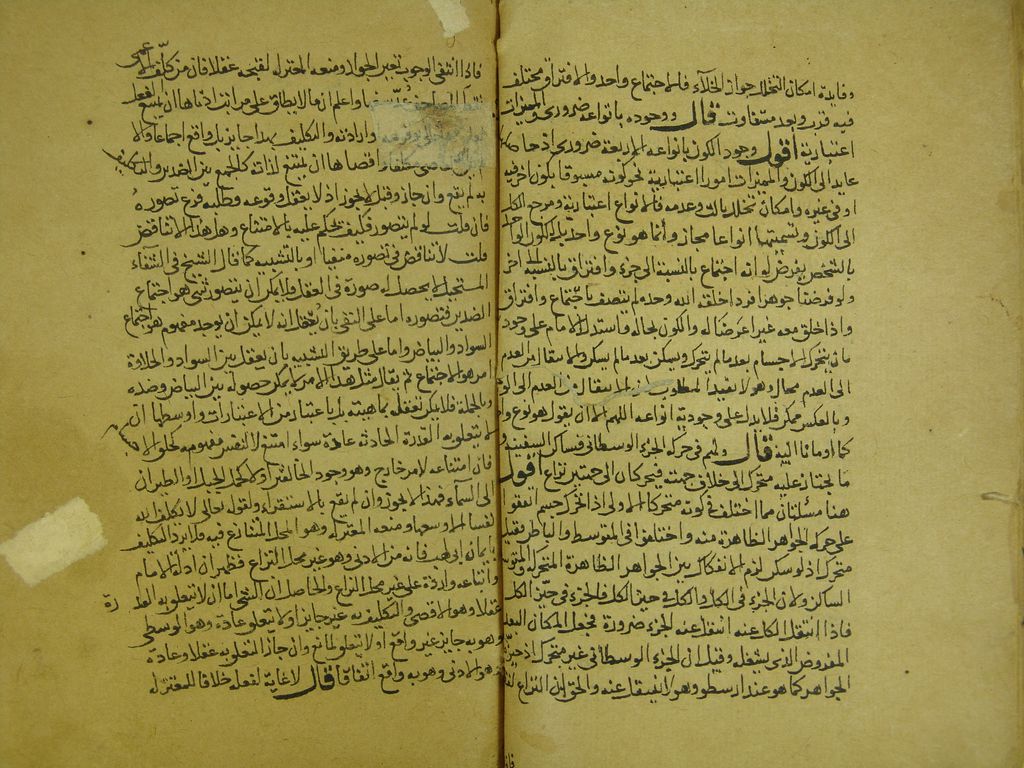 وفايدة امكان التخلل جواز الخلآء فالاجتماع واحد والافتراق مختلف
فيه قرب وبعد متفاوت قال ووجوده بانواعه ضروري والمميزات
اعتبارية اقول وجود الكون بانواعه الاربعة ضروري اذ حاصلها
عايد الى الكون والمميزات امورا اعتبارية نحو كونه مسبوقا بكون اخر فيه
او في غيره وامكان تخلل ثالث وعدمه فالانواع اعتبارية ومرجع الكل
الى الكون وتسميتها انواعا مجاز وانما هو نوع واحد بل الكون الواحد
بالشخص يعرض له انه اجتماع بالنسبة الى جزء وافتراق بالنسبة الى اخر
ولو فرضنا جوهرا فردا خلقه الله وحده لم يتصف باجتماع وافتراق
واذا خلق معه غيرا عرضا له والكون بحاله واستدل الامام على وجود
بان بتحرك الاجسام بعد مالم يتحرك ويسكن بعد مالم يسكن والانتقال من العدم
الى العدم محال وهو لا يفيد المطلوب لان الانتقال من العدم الى الوجود
وبالعكس ممكن فلا يدل على وجودية انواعه اللهم الا ان يقول هو نوع واحد
كما اومأنا اليه قال ولهم في حركة الجزء الوسطاني فيساكن السفينة
ما يجتاز عليه متحرك الى خلاف جهته فيحركان الى جهتين نزاع اقول
هنا مسئلتان مما اختلف في كونه متحركا الاولى اذا تحرك جسم اتفقوا
على حركة الجواهر الظاهرة منه واختلفوا في المتوسط والباطن فقيل
متحرك اذ لو سكن لزم الانفكاك بين الجواهر الظاهرة المتحركة والمتوسط
الساكن ولان الجزء في الكل والكل في حيز الكل فالجزء في حيز الكل
فاذا انتقل الكل عنه انتقل عنه الجزء ضرورة فجعل المكان البعد
المفروض الذي يشغله وقيل ان الجزء الوسطاني غير متحرك اذ حيزه
الجواهر كما هو عند ارسطو وهو لا ينتقل عنه والحق ان النزاع
فاذا انتفى الوجوب تعين الجواز ومنعه المعتزله لقبحه عقلا فان من كلف الاعمى
واعلم ان ما لا يطاق على مراتب ادناها ان يمتنع الفعل
وارادته والتكليف بهذا جايز بل واقع اجماعا والا
اقصاها ان يمتنع لذاته كالجمع بين الضدين والتكليف
به لم يقع وان جاز وقيل لا يجوز اذ لا يعقل وقوعه وطلبه فرع تصوره
فان قلت لو لم يتصور فكيف يحكم عليه بالامتناع وهل هذا الا تناقض
قلت لا تناقض في تصوره منفيا او بالتشبيه كما قال الشيخ في الشفاء
المستحيل لا يحصل له صورة في العقل فلا يمكن ان يتصور شئ هو اجتماع
الضدين فتصوره اما على النفي بان يعقل انه لا يمكن ان يوجد مفهوم هو اجتماع
السواد والبياض واما على طريق التشبيه بان يعقل بين السواد والحلاوة
امر هو الاجتماع ثم يقال مثل هذا الامر لا يمكن حصوله بين البياض وضده
وبالجملة فلا يمكن تعقله بماهيته بل باعتبار من الاعتبارات واوسطها ان
لا يتعلق به القدرة الحادثه عادة سواء امتنع لا لنفس مفهومه كخلق الاجسام
فان امتناعه لامر خارج وهو وجود الخالق تعالى او لا كحمل الجبل والطيران
الى السمآء فهذا لا يجوز وان لم يقع بالاستقراء ولقوله تعالى لا تكلف الله
نفسا الا وسعها ومنعه المعتزله وهو المحل المتنازع فيه فلا يرد التكليف
بايمانه ابي لهب فانه من الادنى وهو غير محل النزاع فظهر ان ادلة الامام
واتباعه واردة على غير محل النزاع والحاصل ان الشئ اما ان لا يتعلق به القد
رة
عقلا وهو الاقصى والتكليف به غير جايز او لا يتعلق عادة وهو الوسطى
وهو به جايز غير واقع او لا يتعلق لمانع وان جاز التعلق به عقلا وعادة
وهو الادنى وهو به واقع اتفاقا قال لا غاية لفعله خلافا للمعتزله